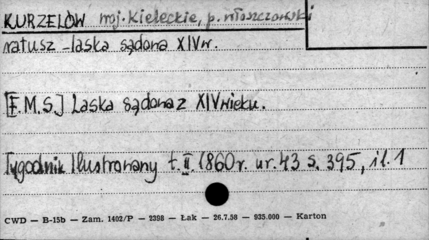 KURZELÓW woj. Kieleckie, p. włoszczowski
ratusz - laska sądowa XIV w.
[F.M.S.] Laska sądowa z XIV wieku.
Tygodnik Ilustrowany t. II 1860 r. nr. 43 s. 395, il. 1
CWD — B-15b — Zam. 1402/P — 2398 — Łak — 26.7.58 — 935.000 — Karton